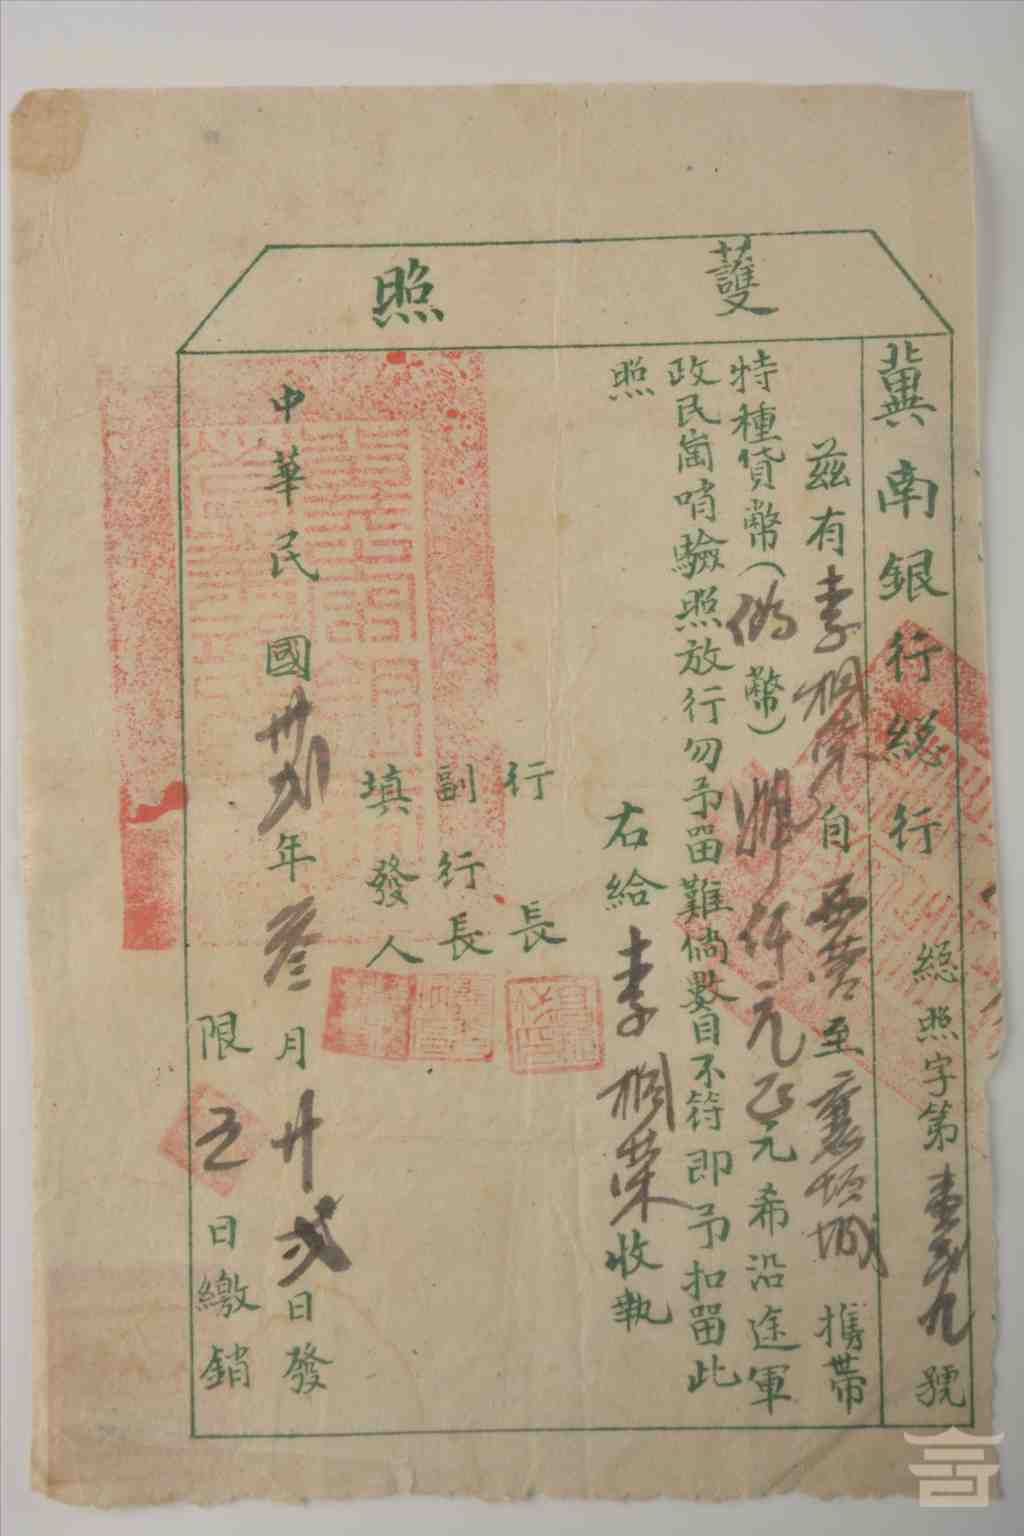 護照
冀南銀行総行 總照字第壹弍九號
茲有李桐荣自西营至襄垣城攜帶
特種貨幣(偽幣)肆仟元正元希沿途軍
政民崗哨驗照放行勿予留難倘數目不符即予扣留此
照
右給李桐荣收執
行長
副行長
填發人
中華民國卅弍年叁月廿弍日發
限五日繳銷